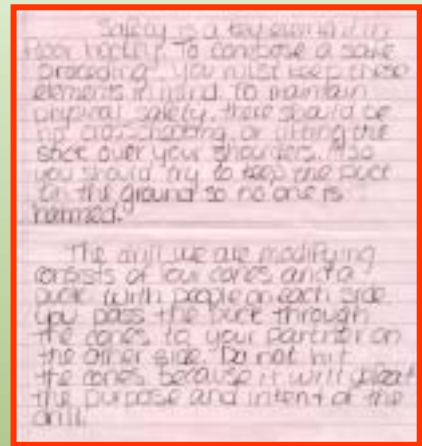 Safety is a key element in
floor hockey. To compose a safe
proceeding you must keep these
elements in mind. To maintain
physical safety, there should be
no cross checking, or lifting the
stick over your shoulders. Also
you should try to keep the puck
on the ground so no one is
harmed.
The drill we are modifying
consists of four cones and a
puck. With people on each side
you pass the puck through
the cones to your partner on
the other side. Do not hit
the cones because it will
the purpose and intent of the
drill.